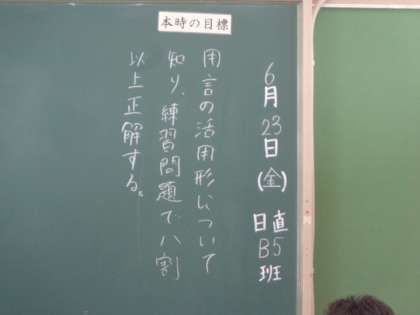 本時の目標
6月23日(金)
日直 B5班
用言の活用形について
知り、練習問題で八割
以上正解する。